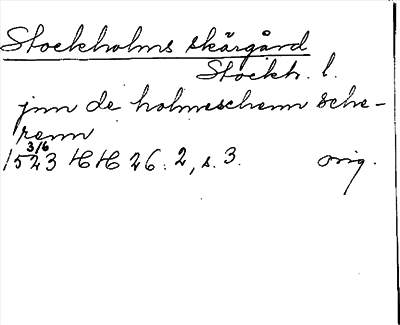 Stockholms skärgård
Stockh. l.
jnn de holmeschenn sche-
renn
3/6
1523 HH 26:2, s. 3. orig.